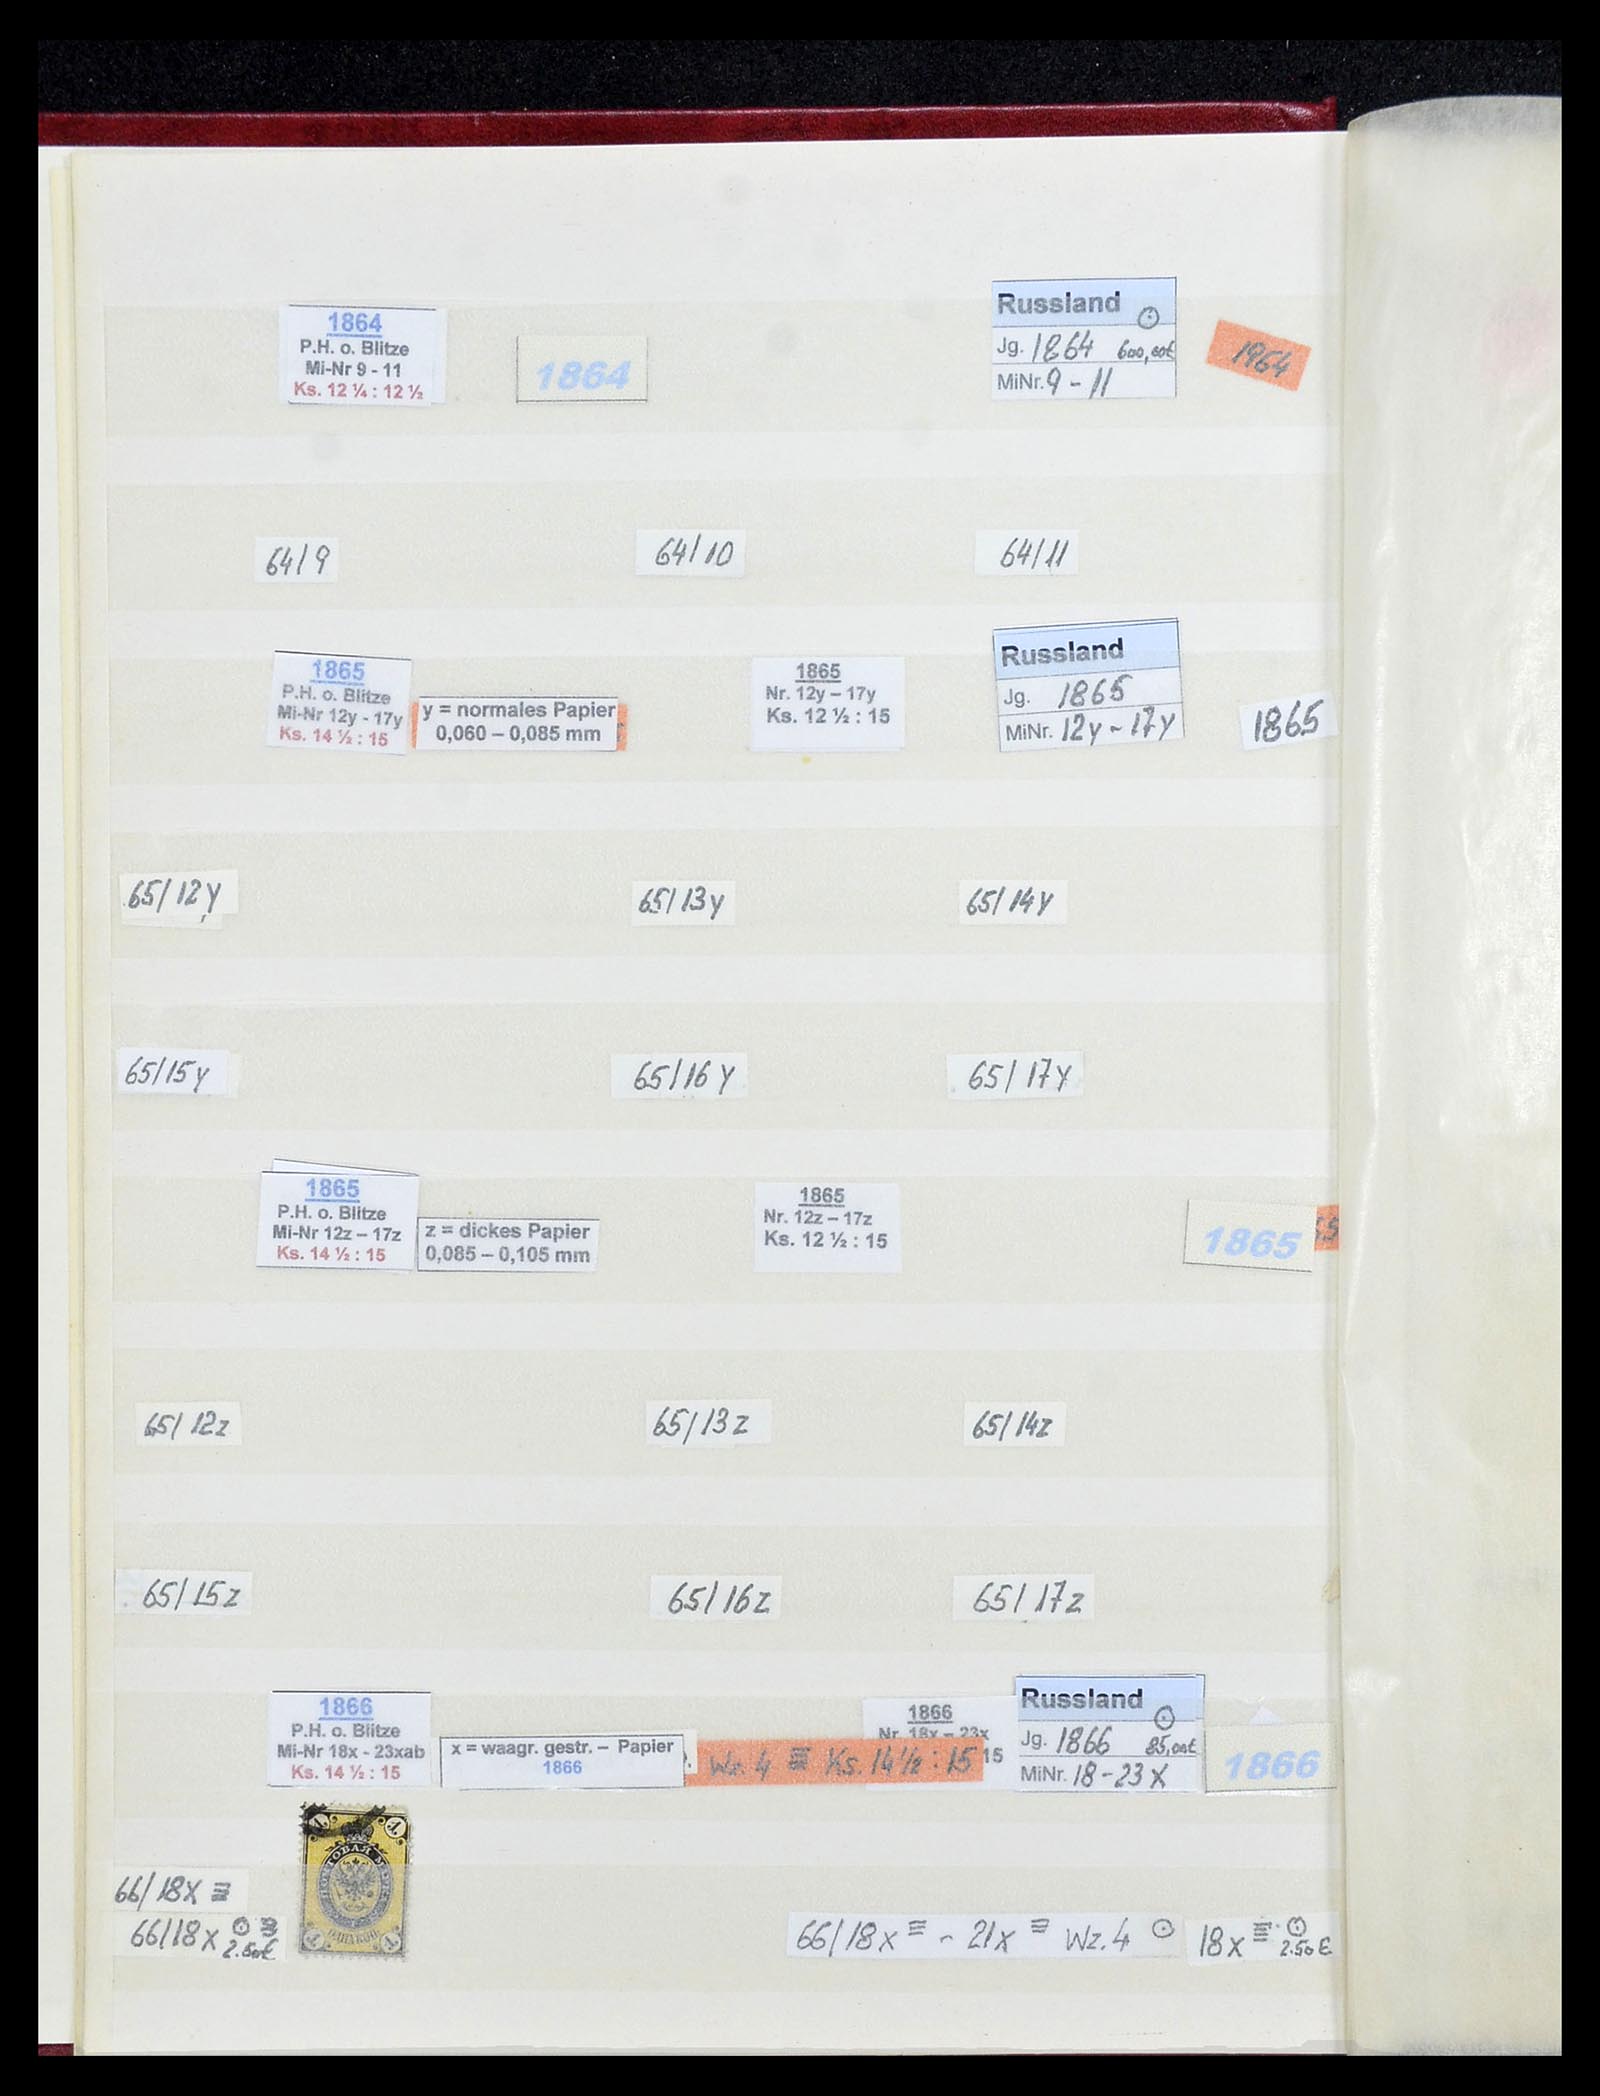 1864
P.H. o. Blitze
Mi-Nr 9 - 11
Ks. 12 ¼ : 12 ½
1864
Russland
Jg. 1864 600,00€
MiNr. 9 - 11
1964
64/9
64/10
64/11
1865
P.H. o. Blitze
Mi-Nr 12y - 17y
Ks. 14 ½ : 15
y = normales Papier
0,060 – 0,085 mm
1865
Nr. 12y – 17y
Ks. 12 ½ : 15
Russland
Jg. 1865
MiNr. 12y - 17y
1865
65/12y
65/13y
65/14y
65/15y
65/16y
65/17y
1865
P.H. o. Blitze
Mi-Nr 12z – 17z
Ks. 14 ½ : 15
z = dickes Papier
0,085 – 0,105 mm
1865
Nr. 12z – 17z
Ks. 12 ½ : 15
1865
65/12z
65/13z
65/14z
65/15z
65/16z
65/17z
1866
P.H. o. Blitze
Mi-Nr 18x - 23xab
Ks. 14 ½ : 15
x = waagr. gestr. – Papier
1866
Wz. 4 ≡ Ks. 14 ½ : 15
1866
Nr. 18x – 23x
15
Russland
Jg. 1866 85,00€
MiNr. 18 - 23 x
1866
66/18x ≡
66/18x ⊙ ≡
2.50€
66/18x ≡ - 21x ≡ Wz. 4 ⊙
18x ≡ ⊙
2.50 €